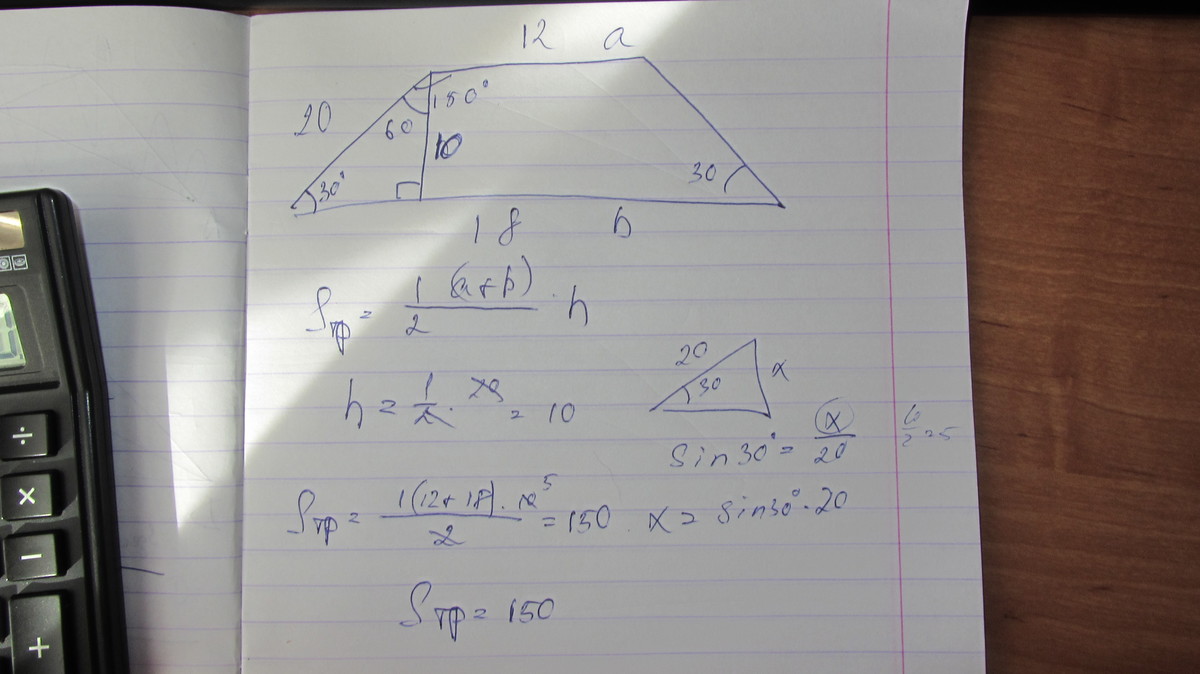 12 a
20
150°
60
10
30°
30
18 b
Sтр = 1 (a+b) / 2 · h
h = 1/2 · 20 = 10
20
30
x
sin30° = x/20
Sтр = 1(12+18) · 10 5 / 2 = 150
x = sin30° · 20
Sтр = 150
÷
×
−
+